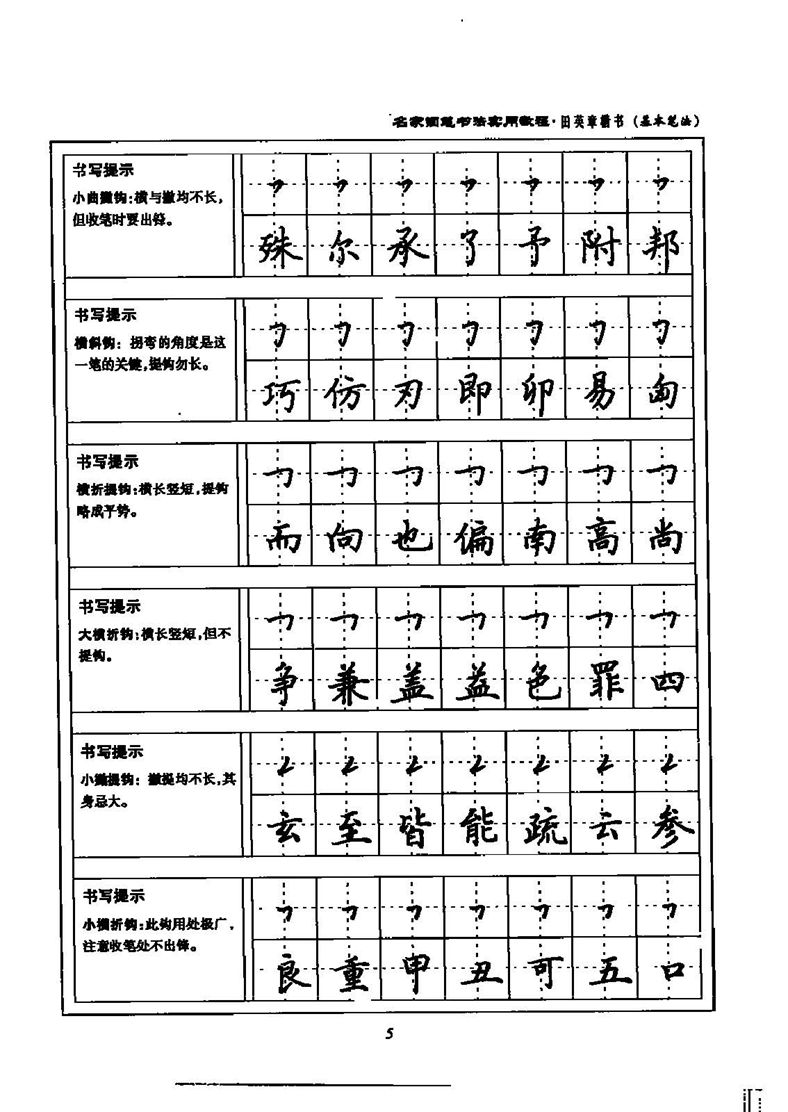 名家钢笔书法实用教程·田英章楷书（基本笔法）
书写提示
小曲撇钩：横与撇均不长，
但收笔时要出锋。
殊尔承了予附邦
书写提示
横斜钩：拐弯的角度是这
一笔的关键，提钩勿长。
巧仿刃即卯易匈
书写提示
横折提钩：横长竖短，提钩
略成平势。
而向也偏南高尚
书写提示
大横折钩：横长竖短，但不
提钩。
争兼盖益色罪四
书写提示
小撇提钩：撇提均不长，其
身忌大。
玄至皆能疏云参
书写提示
小横折钩：此钩用处极广，
注意收笔处不出锋。
良重甲丑可五口
5